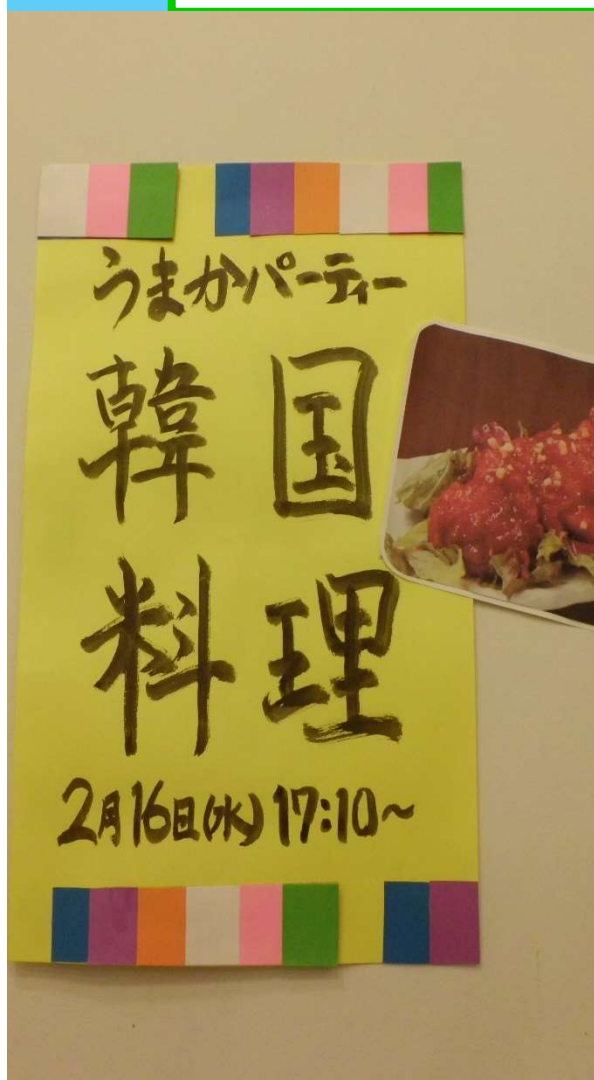 うまかパーティー
韓国
料理
2月16日(水)17:10~